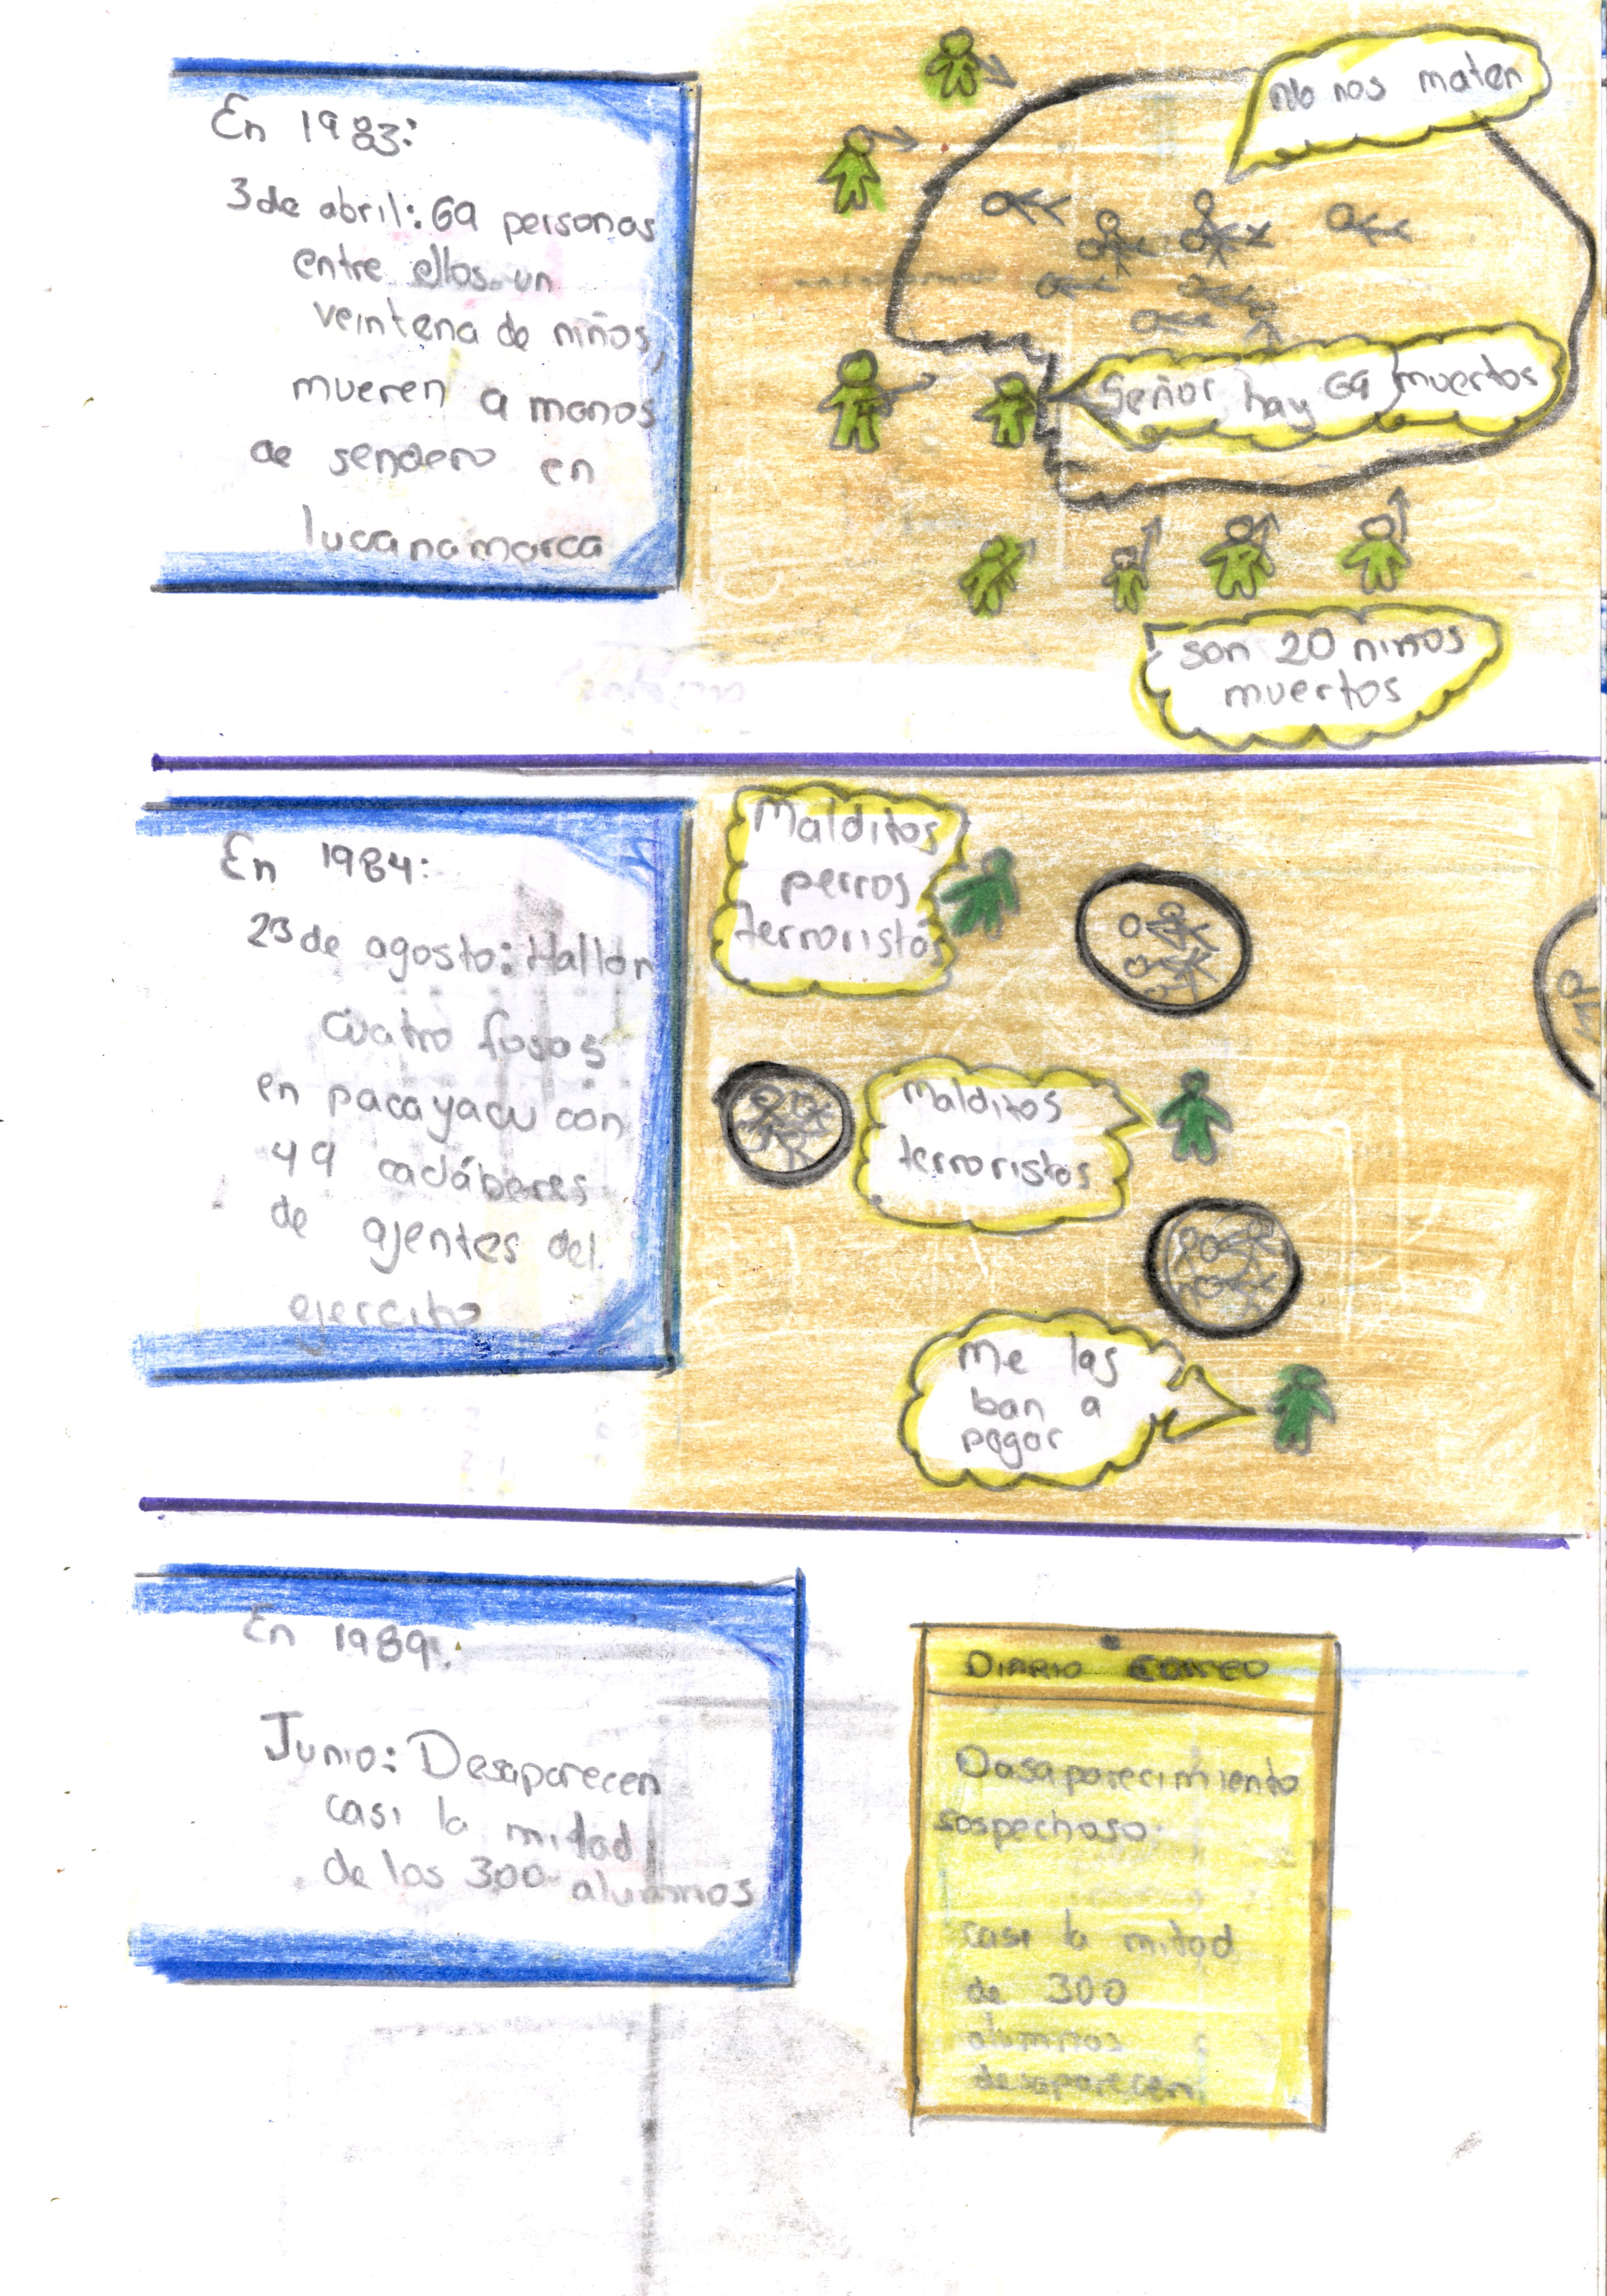 En 1983:
3 de abril: 69 personas
entre ellos un
veintena de niños,
mueren a manos
de sendero en
lucanamarca
No nos maten
Señor hay 69 muertos
son 20 niños
muertos
En 1984:
23 de agosto: Hallan
cuatro fosas
en pacayacu con
49 cadáberes
de ajentes del
ejercito
Malditos
perros
terroristas
Malditos
terroristas
Me las
ban a
pagar
En 1989:
Junio: Desaparecen
casi la mitad
de los 300 alumnos
DIARIO CORREO
Dasaparecimiento
sospechoso:
casi la mitad
de 300
alumnos
desaparecen